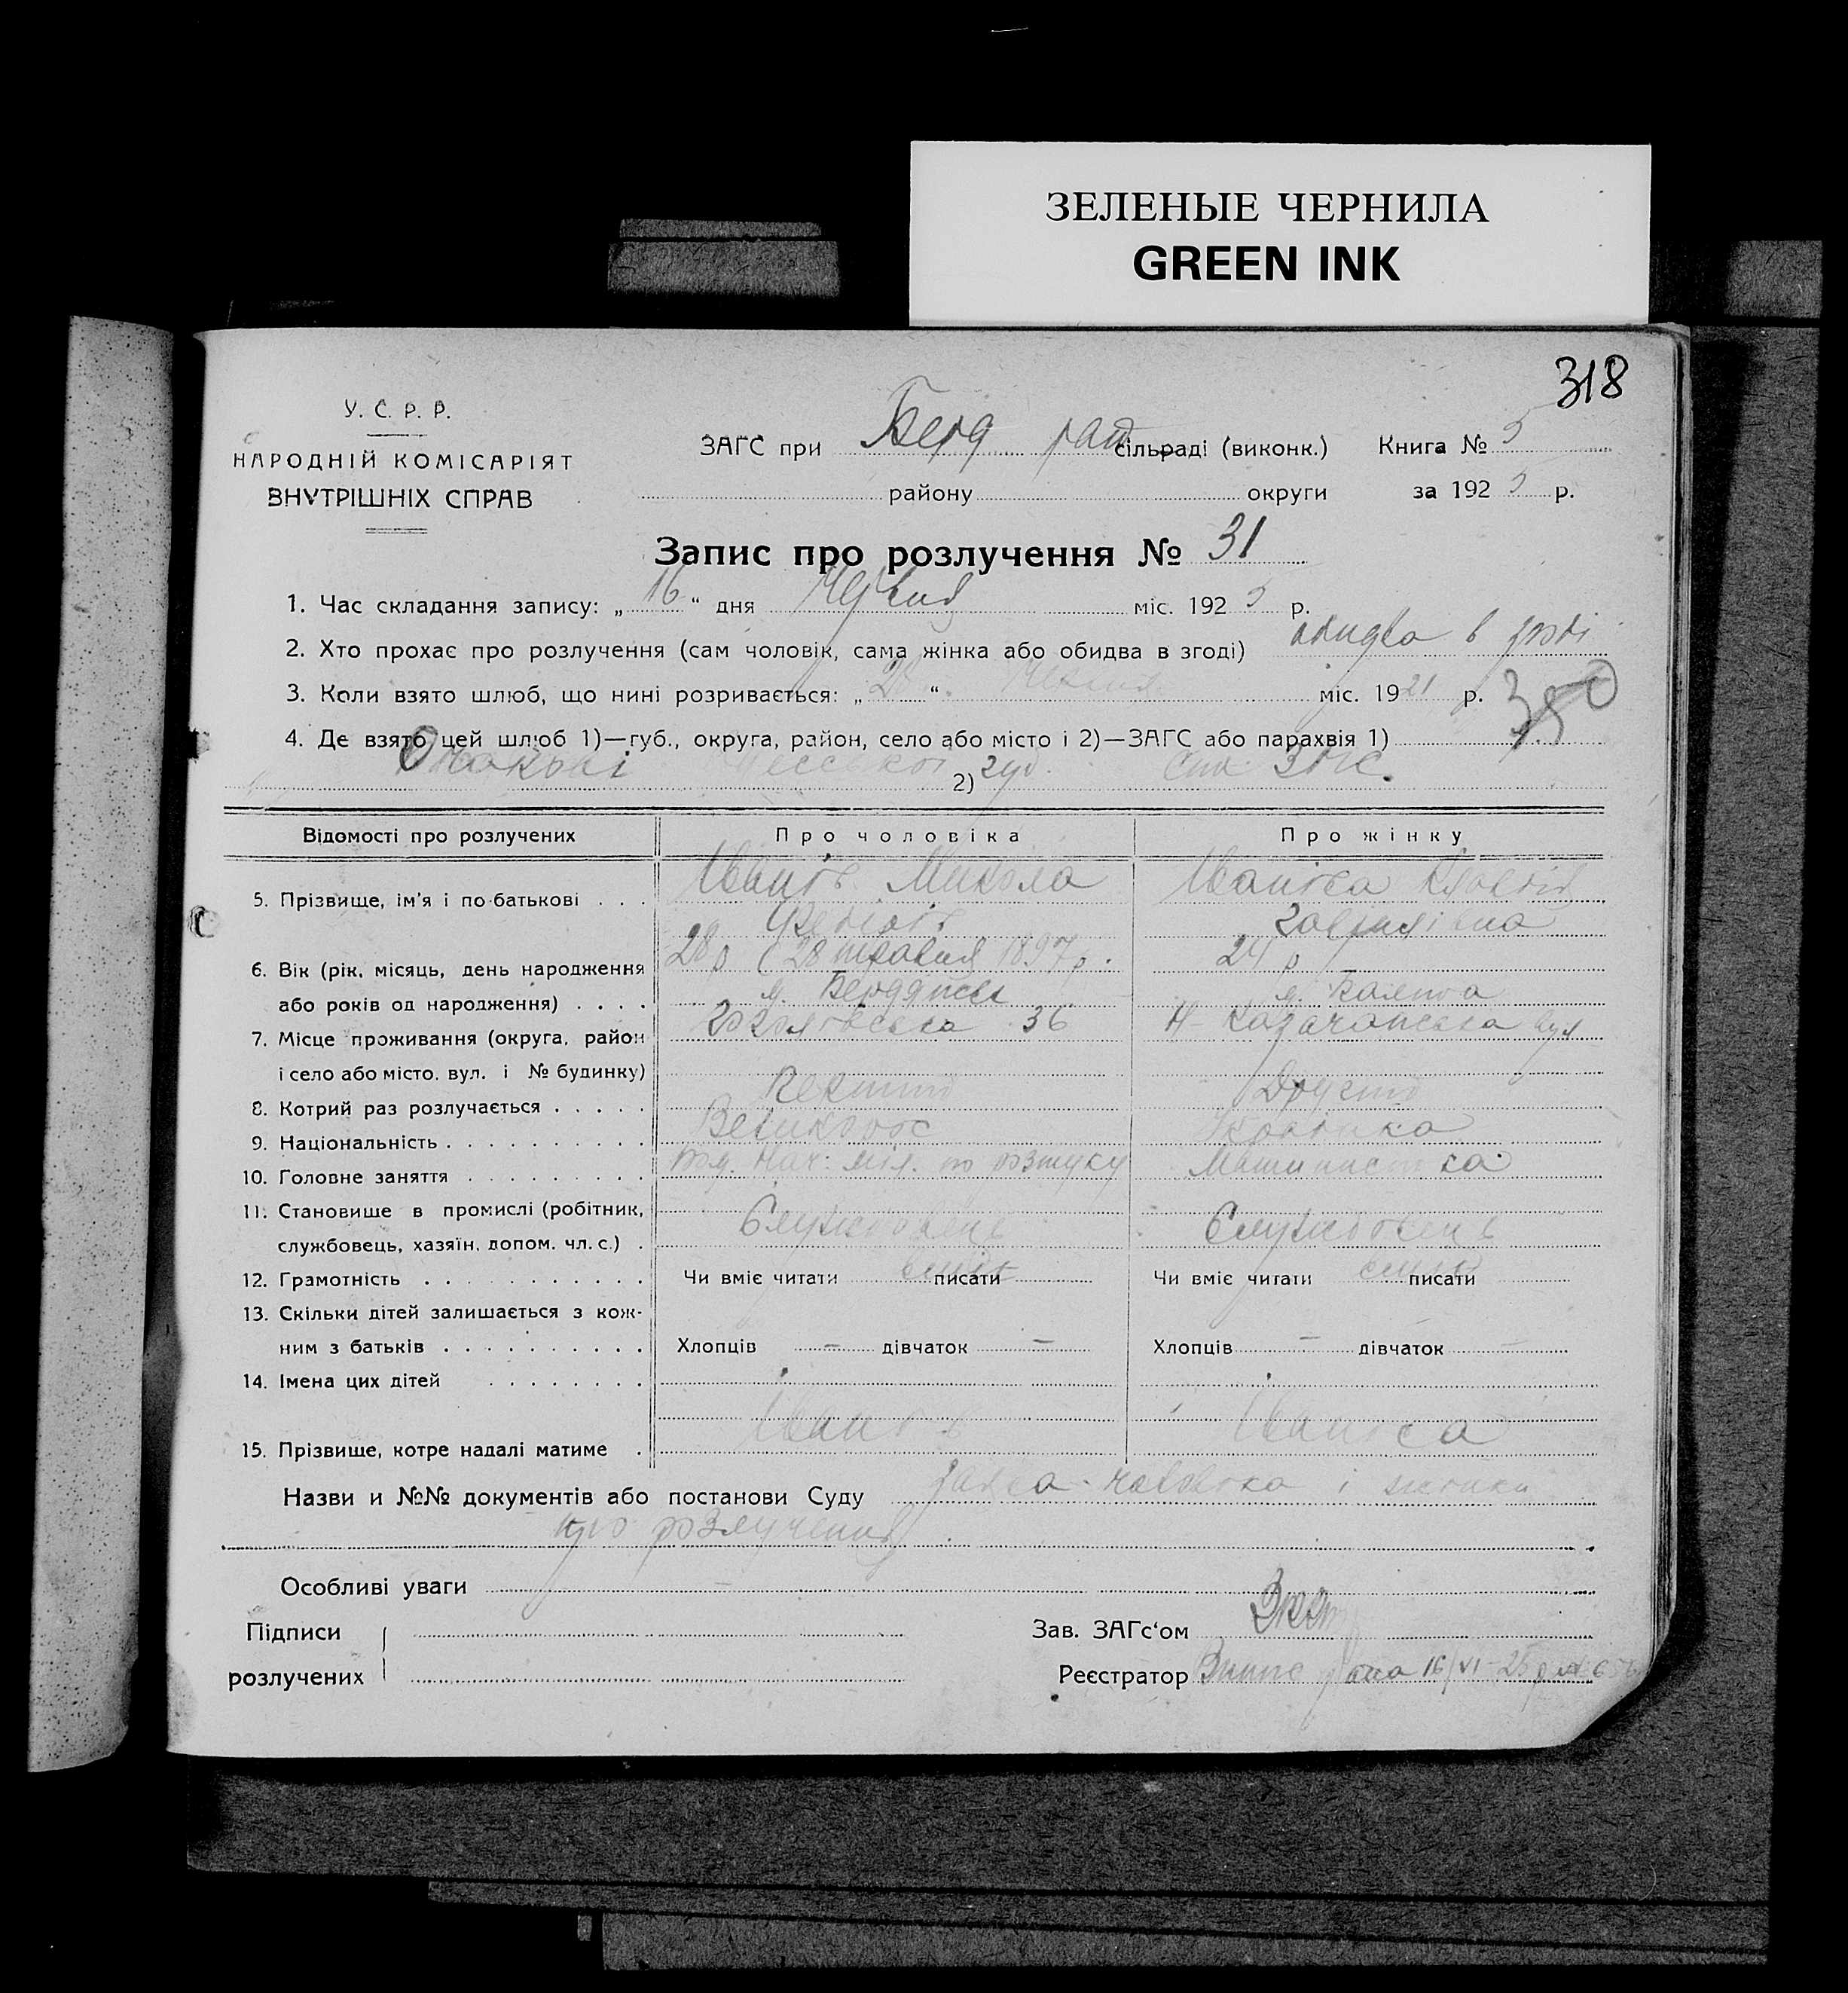 ЗЕЛЕНЫЕ ЧЕРНИЛА
GREEN INK
318
У. С. Р. Р.
НАРОДНІЙ КОМІСАРІЯТ
ВНУТРІШНІХ СПРАВ
ЗАГС при Берд рай сільраді (виконк.) Книга № 5
району округи за 192 5 р.
Запис про розлучення № 31
1. Час складання запису: „ 16 “ дня Червня міс. 192 5 р.
2. Хто прохає про розлучення (сам чоловік, сама жінка або обидва в згоді) обидва в згоді
3. Коли взято шлюб, що нині розривається: „ “ міс. 19 21 р.
350
4. Де взято цей шлюб 1)—губ., округа, район, село або місто і 2)—ЗАГС або парахвія 1)
Очакові Одесської 2) губ. ЗАГС.
Відомості про розлучених Про чоловіка Про жінку
5. Прізвище, ім'я і по-батькові . . . Іванів Микола Іванова Клавдія
Гаврилівна
6. Вік (рік, місяць, день народження 28 р ( 28 травня 1897 р. 24 р
або років од народження) . . . . м. Бердянськ м. Ялта
7. Місце проживання (округа, район Гоголівська 36 вул
і село або місто, вул. і № будинку)
8. Котрий раз розлучається . . . . . Перший Другий
9. Національність . . . . . . . . . . Великорос Українка
10. Головне заняття . . . . . . . . . Пом. Нач. міл. по розшуку Машинистка
11. Становище в промислі (робітник,
службовець, хазяїн, допом. чл. с.) . Службовець Службовець
12. Грамотність . . . . . . . . . . . Чи вміє читати вміє писати Чи вміє читати вміє писати
13. Скільки дітей залишається з кож-
ним з батьків . . . . . . . . . . Хлопців — дівчаток — Хлопців — дівчаток —
14. Імена цих дітей . . . . . . . .
15. Прізвище, котре надалі матиме . Іванів Іванова
Назви и №№ документів або постанови Суду Заява чоловіка і жінки
про розлучення
Особливі уваги
Підписи
розлучених
Зав. ЗАГс‘ом
Реєстратор Випис дана 16/VI-25 р